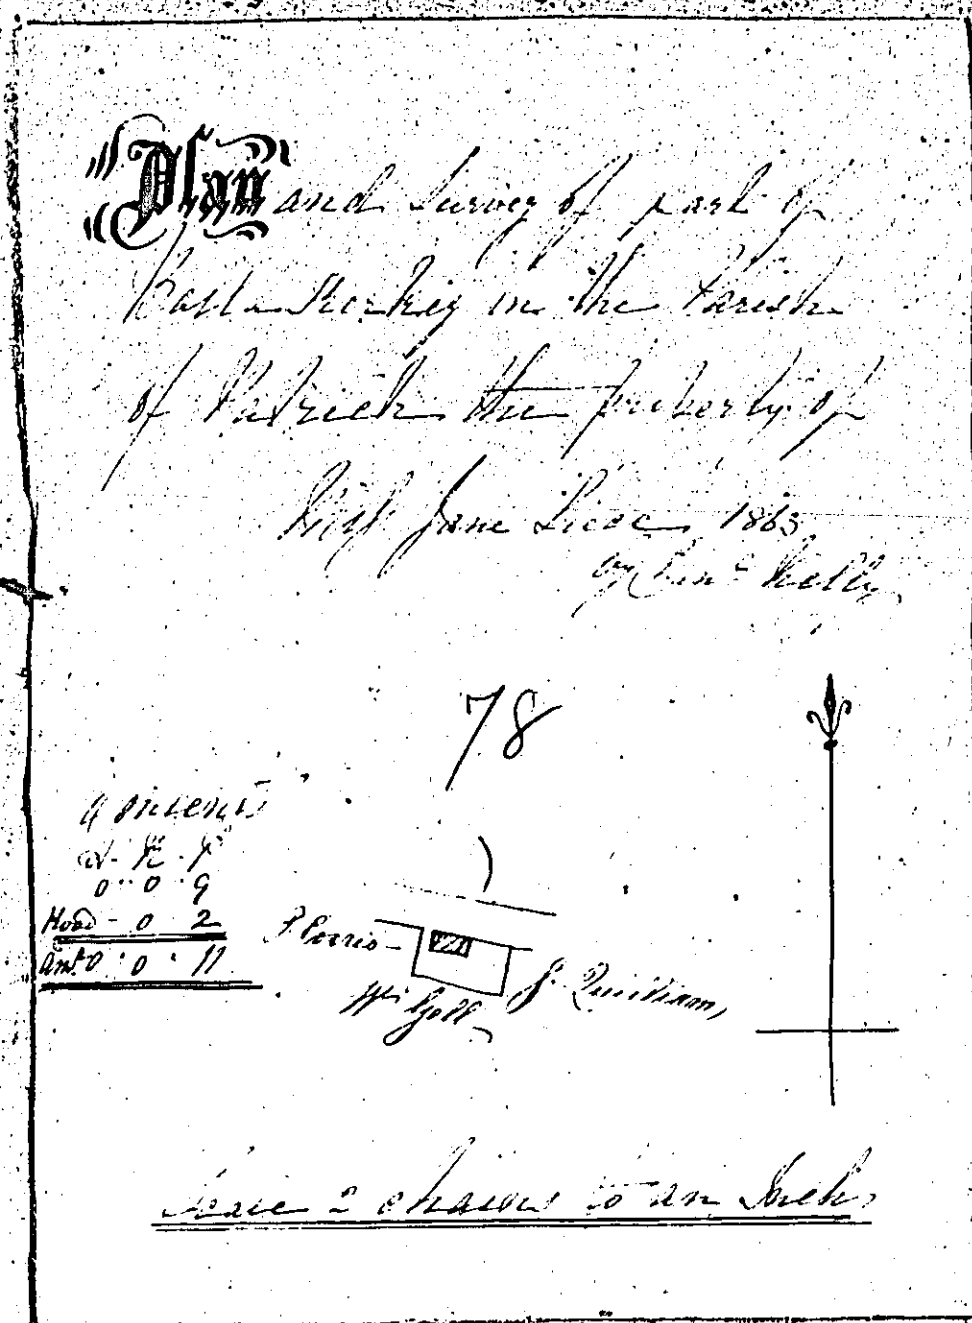 Plan and Survey of part of
in the Parish
of Patrick the property of
Miss Jane 1863
by Kelly
78
Contents
A. R. P
0 .. 0 .. 9
Road - 0 2
Amt 0 : 0 : 11
P. Corris
Wm. Gell
J. Quilliam,
Scale 2 chains to an Inch